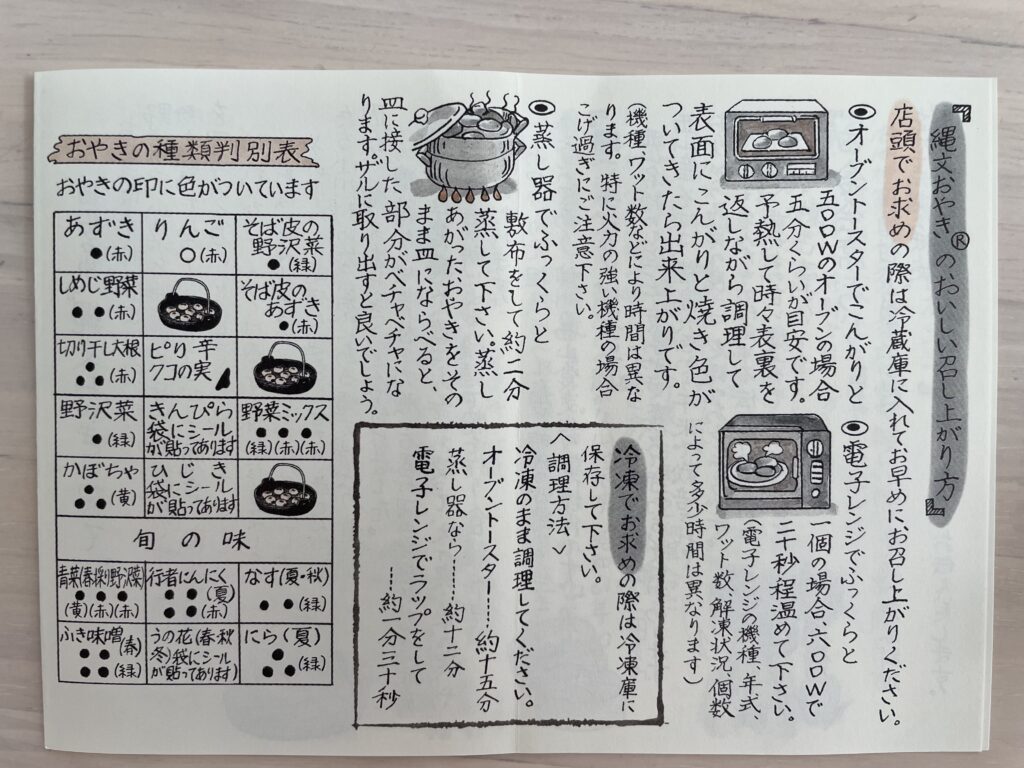 縄文おやき®のおいしい召し上がり方
店頭でお求めの際は冷蔵庫に入れてお早めにお召し上がりください。
オーブントースターでこんがりと
五〇〇Wのオーブンの場合
五分くらいが目安です。
予熱して時々表裏を
返しながら調理して
表面にこんがりと焼き色が
ついてきたら出来上がりです。
(機種、ワット数などにより時間は異な
ります。特に火力の強い機種の場合
こげ過ぎにご注意下さい。
電子レンジでふっくらと
一個の場合六〇〇Wで
二十秒程温めて下さい。
(電子レンジの機種、年式、
ワット数、解凍状況、個数
によって多少時間は異なります)
蒸し器でふっくらと
敷布をして約二分
蒸して下さい。蒸し
あがったおやきをその
まま皿にならべると、
皿に接した部分がベチャベチャにな
ります。ザルに取り出すと良いでしょう。
冷凍でお求めの際は冷凍庫に
保存して下さい。
<調理方法>
冷凍のまま調理してください。
オーブントースター……約十五分
蒸し器なら……約十二分
電子レンジでラップをして
……約一分三十秒
おやきの種類判別表
おやきの印に色がついています
あずき
●(赤)
りんご
○(赤)
そば皮の
野沢菜
●(緑)
しめじ野菜
●●(赤)
そば皮の
あずき
●(赤)
切り干し大根
●●●(赤)
ピリ辛
クコの実
野沢菜
●(緑)
きんぴら
袋にシール
が貼ってあります
野菜ミックス
● ● ●
(緑)(赤)(赤)
かぼちゃ
●●●(黄)
ひじき
袋にシール
が貼ってあります
旬の味
青菜(春採り野沢菜)
● ● ●
(黄)(赤)(赤)
行者にんにく
●●(夏)
●●(赤)
なす(夏・秋)
●●(緑)
ふき味噌(春)
●●
●●(緑)
うの花(春・秋
冬)袋にシール
が貼ってあります)
にら(夏)
●●●(緑)